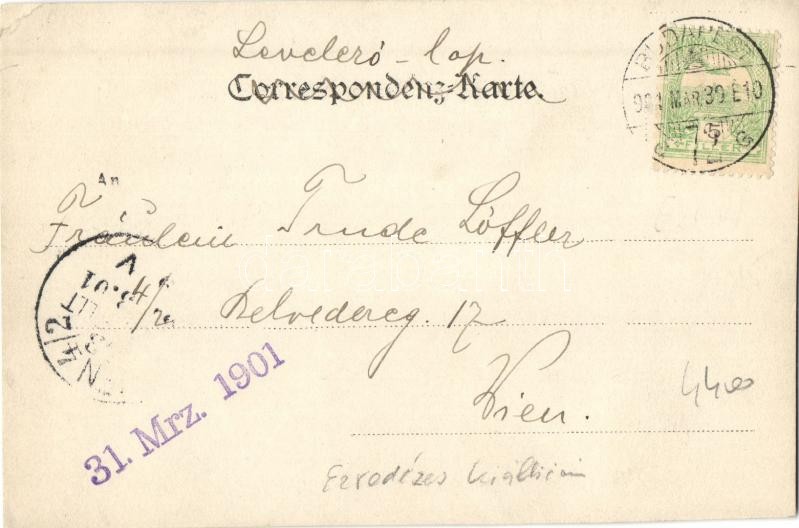 Levelező-lap.
Correspondenz-Karte.
BUDAPEST
901 MAR 30 E10
5 FILLER
An
Fräulein Trude Löffler
4/2
Belvedereg. 17
Wien.
31. Mrz. 1901
4400
Ezredézes kiállítás